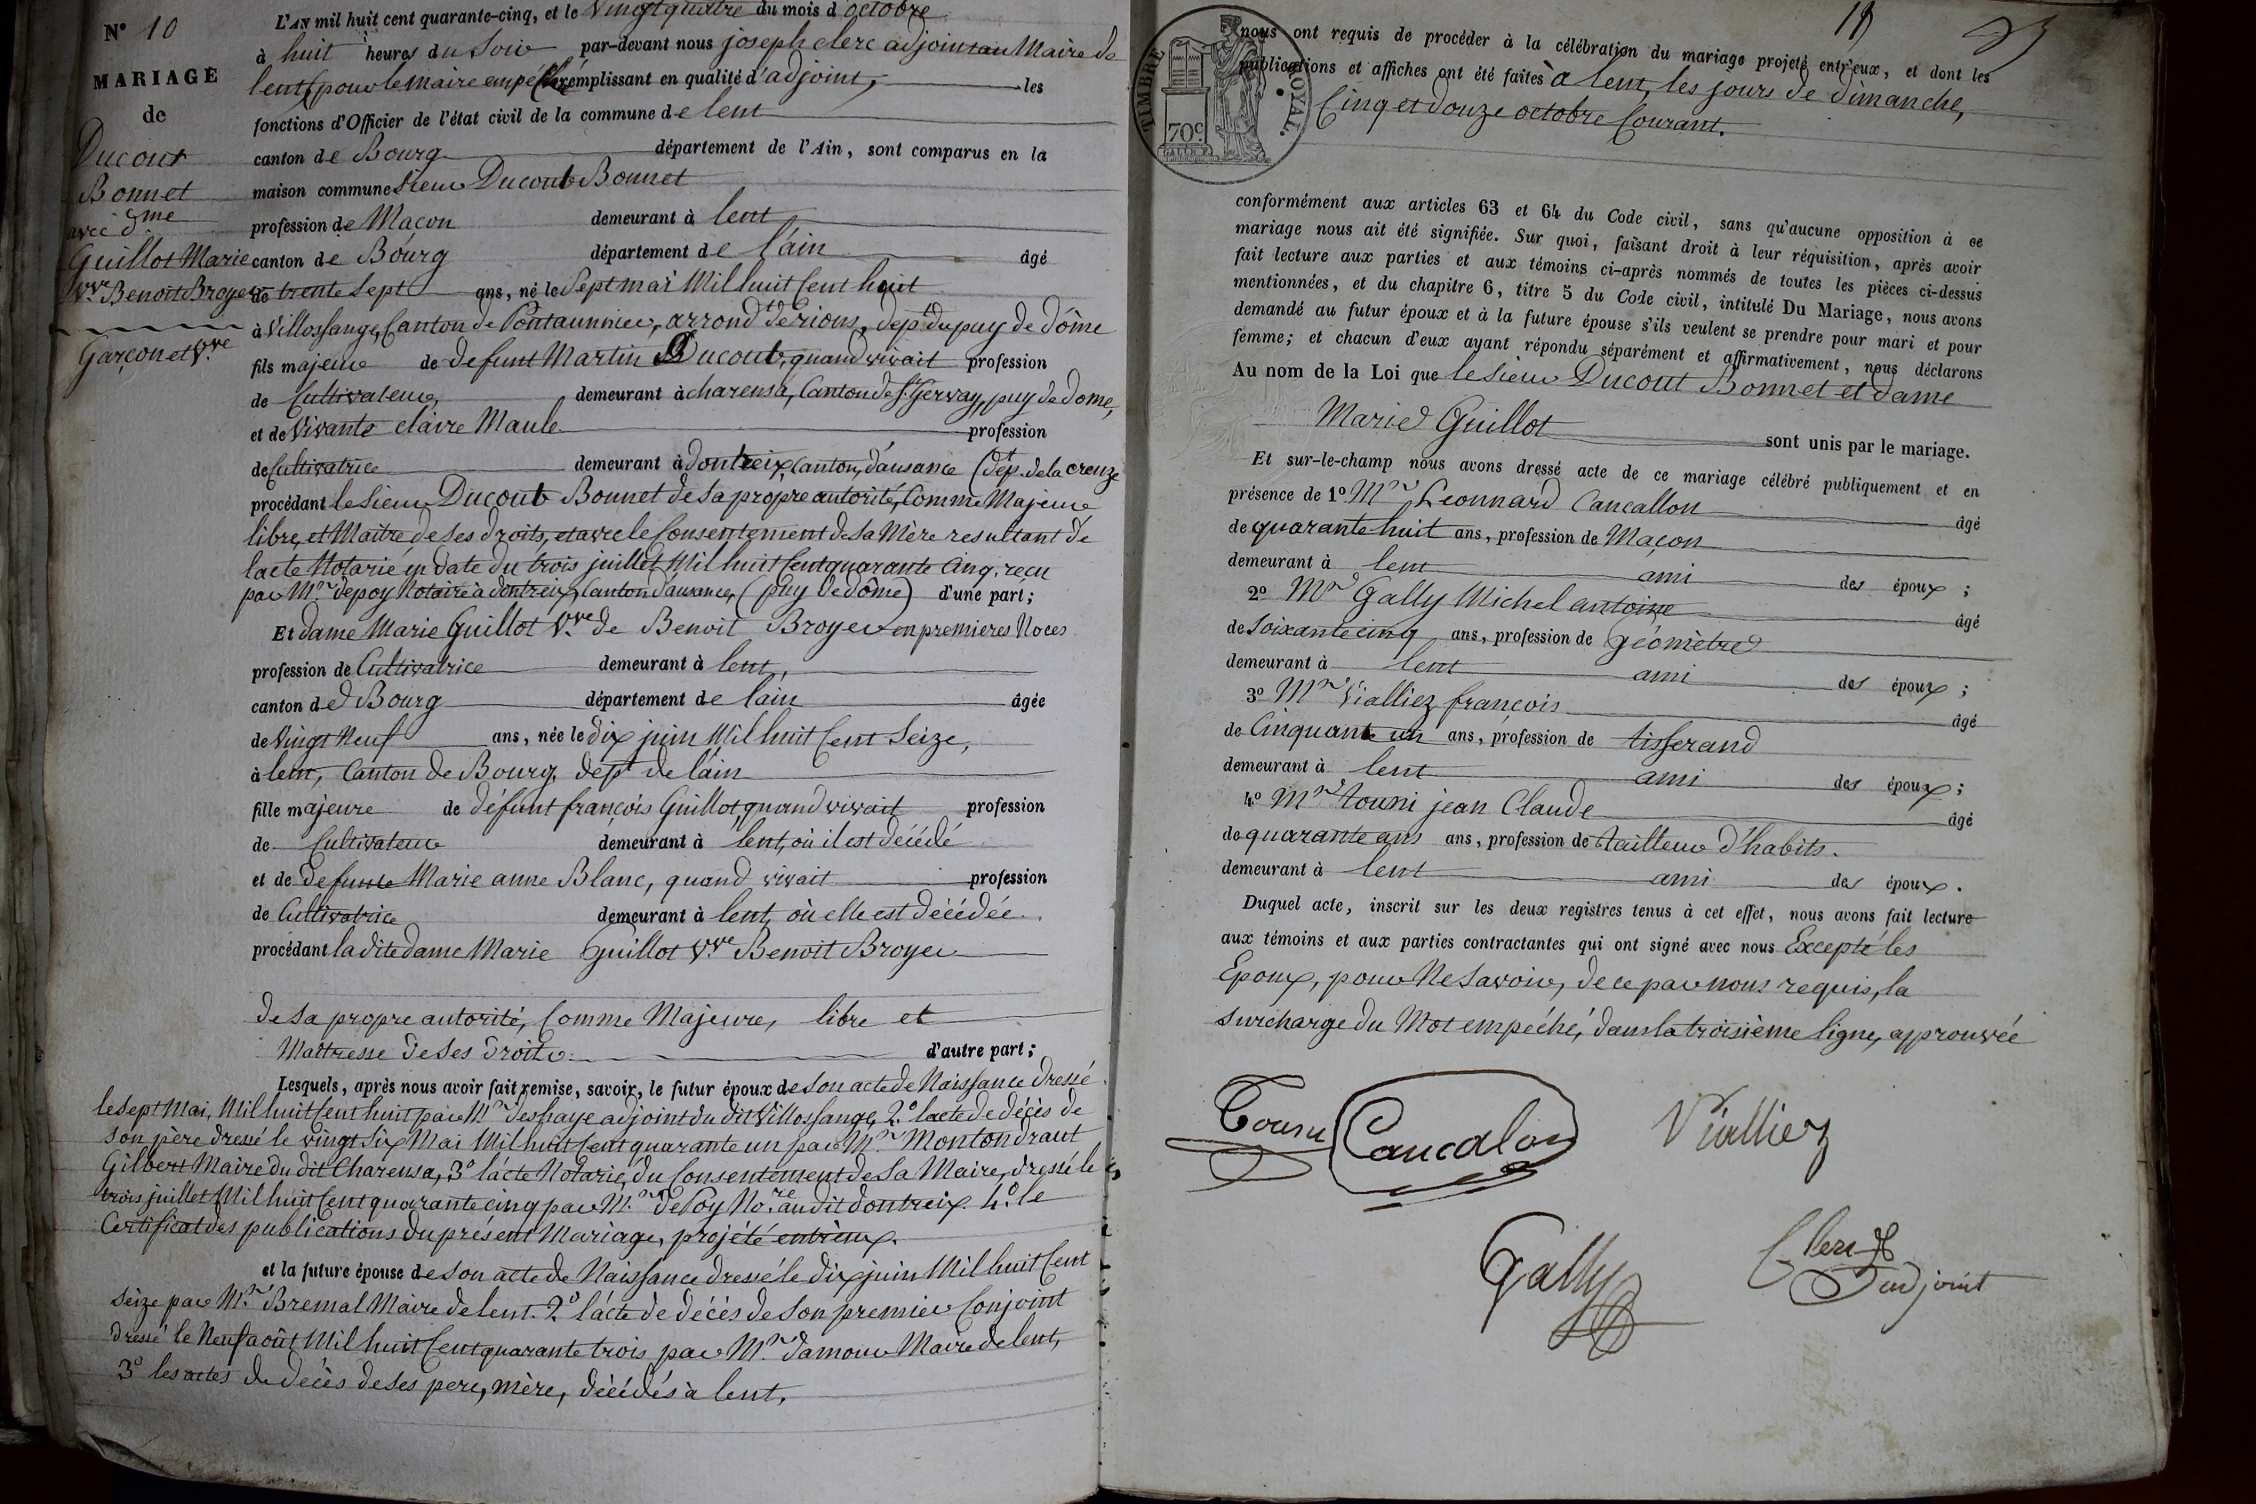 N° 10
MARIAGE
de
Ducout
Bonnet
avec d.me
Guillot Marie
Vve Benoit Broyer
Garçon et Vve
L'AN mil huit cent quarante-cinq, et le Vingt quatre du mois d octobre
à huit heures du Soir par-devant nous joseph clerc adjoint au Maire de
lent, (pour le maire empéché) remplissant en qualité d'adjoint, les
fonctions d'Officier de l'état civil de la commune de lent
canton de Bourg département de l'Ain, sont comparus en la
maison commune Sieur Ducout Bonnet
profession de Maçon demeurant à lent
canton de Bourg département de l'ain âgé
de trente Sept ans, né le Sept mai Mil huit Cent huit
à Villossange, Canton de Pontaumur, arrond.t de rions, dep.t du puy de dôme
fils majeur de defunt Martin Ducout, quand vivait profession
de Cultivateur, demeurant à charensa, Canton de St Gervay, puy de dome,
et de Vivante claire Maule profession
de Cultivatrice demeurant à dontreix, Canton, d'ausance (dép.t de la creuze
procédant le Sieur Ducout Bonnet de sa propre autorité, Comme Majeur
libre, et Maitre de ses droits, et avec le Consentement de sa Mère resultant de
l'acte Notarié en date du trois juillet Mil huit Cent quarante Cinq, reçu
par Mr depoy Notaire à dontreix, Canton d'ausance, (puy de dôme) d'une part;
Et dame Marie Guillot Vve de Benoit Broyer en premieres Noces
profession de Cultivatrice demeurant à lent,
canton de Bourg département de l'ain âgée
de Vingt Neuf ans, née le dix juin Mil huit Cent Seize,
à lent, Canton de Bourg, dep.t de l'ain
fille majeure de défunt françois Guillot, quand vivait profession
de Cultivateur demeurant à lent, où il est décédé
et de defunte Marie anne Blanc, quand vivait profession
de Cultivatrice demeurant à lent, où elle est décédée
procédant la dite dame Marie Guillot Vve Benoit Broyer
de sa propre autorité, Comme Majeure, libre et
Maitresse de ses droits d'autre part;
Lesquels, après nous avoir fait remise, savoir, le futur époux de son acte de Naissance dressé
le sept Mai, Mil huit Cent huit par Mr deshaye adjoint du dit Villossange, 2.° l'acte de décès de
son père dressé le vingt six Mai Mil huit Cent quarante un par Mr Montondraut
Gilbert Maire du dit Charensa, 3° l'acte Notarié, du Consentement de sa Maire, dressé le
trois juillet Mil huit Cent quarante cinq par Mr de Poy No.re au dit dontreix. 4.° le
Certificat des publications du présent Mariage, projété entr'eux.
et la future épouse de son acte de Naissance dressé le dix juin Mil huit Cent
seize par Mr Bremal Maire de lent. 2.° l'acte de décès de son premier Conjoint
dressé le Neuf août Mil huit Cent quarante trois par Mr damour Maire de lent,
3° les actes de décès de ses pere, mère, décédés à lent.
TIMBRE ROYAL.
70c.
nous ont requis de procéder à la célébration du mariage projeté entr'eux, et dont les
publications et affiches ont été faites à lent, les jours de dimanche,
Cinq et douze octobre Courant.
conformément aux articles 63 et 64 du Code civil, sans qu'aucune opposition à ce
mariage nous ait été signifiée. Sur quoi, faisant droit à leur réquisition, après avoir
fait lecture aux parties et aux témoins ci-après nommés de toutes les pièces ci-dessus
mentionnées, et du chapitre 6, titre 5 du Code civil, intitulé Du Mariage, nous avons
demandé au futur époux et à la future épouse s'ils veulent se prendre pour mari et pour
femme; et chacun d'eux ayant répondu séparément et affirmativement, nous déclarons
Au nom de la Loi que le Sieur Ducout Bonnet et dame
Marie Guillot sont unis par le mariage.
Et sur-le-champ nous avons dressé acte de ce mariage célébré publiquement et en
présence de 1° Mr Leonnard Cancallon âgé
de quarante huit ans, profession de Maçon
demeurant à lent ami des époux;
2° Mr Gally Michel antoine âgé
de Soixante cinq ans, profession de géomètre
demeurant à lent ami des époux;
3° Mr Vialliez françois âgé
de Cinquante un ans, profession de tisserand
demeurant à lent ami des époux;
4° Mr touni jean Claude âgé
de quarante ans ans, profession de tailleur d'habits.
demeurant à lent ami des époux.
Duquel acte, inscrit sur les deux registres tenus à cet effet, nous avons fait lecture
aux témoins et aux parties contractantes qui ont signé avec nous Excepté les
Epoux, pour Ne Savoir, de ce par nous requis, la
surcharge du Mot empéché, dans la troisième ligne, approuvée
Cancalon
Vialliez
Gally
Clerc
adjoint